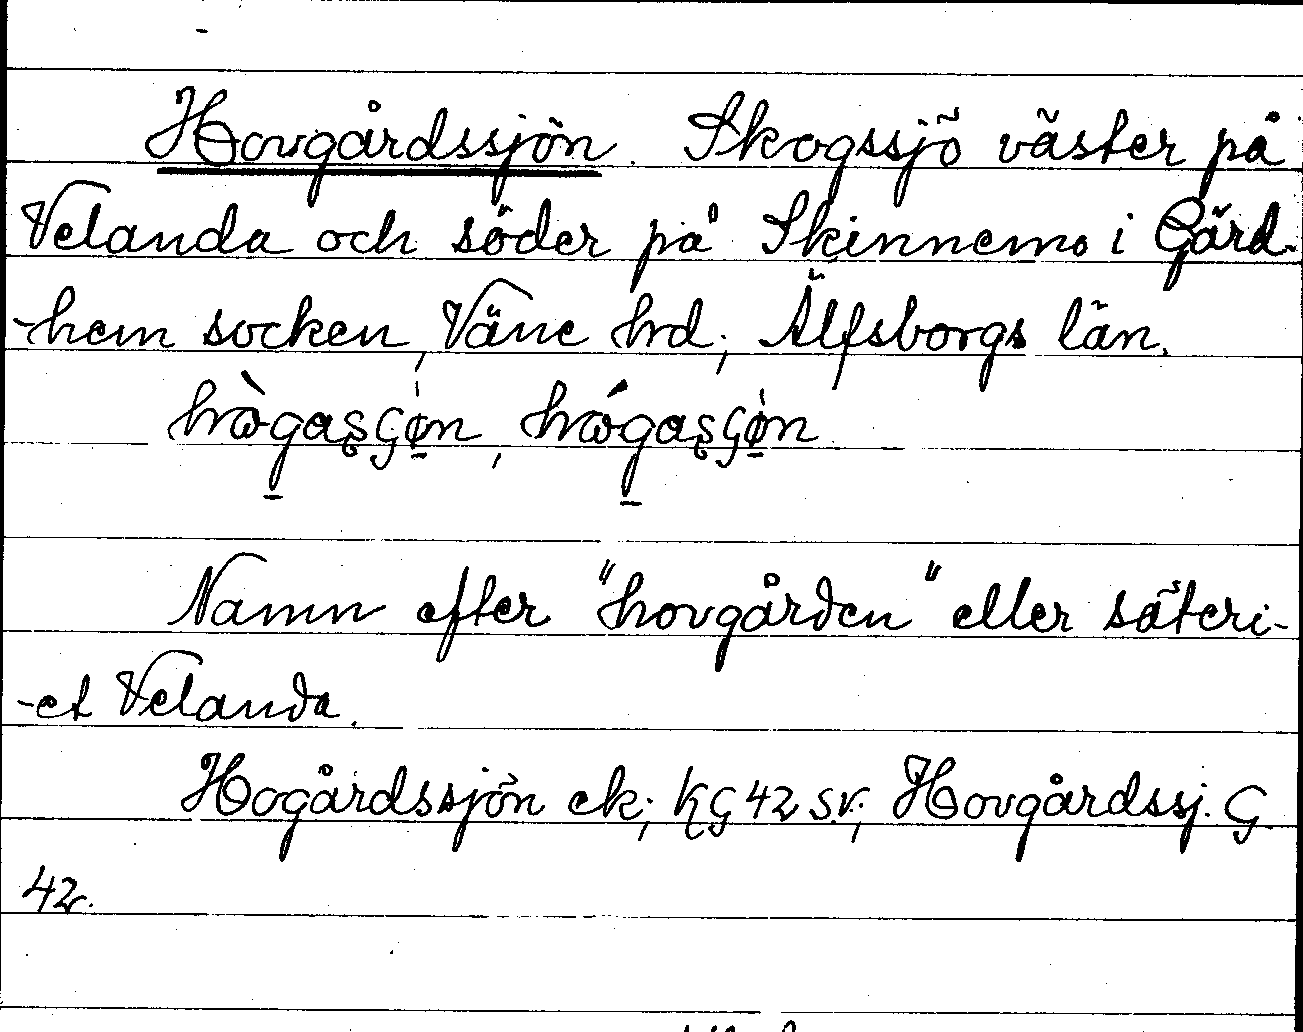 Hovgårdssjön. Skogssjö väster på
Velanda och söder på Skinnemo i Gärd-
-hem socken, Väne hrd; Älfsborgs län.
hògasşɕøn, hógasşɕøn
Namn efter "hovgården" eller säteri-
-et Velanda.
Hogårdssjön ek; KG 42 s.v.; Hovgårdssj. G
42.